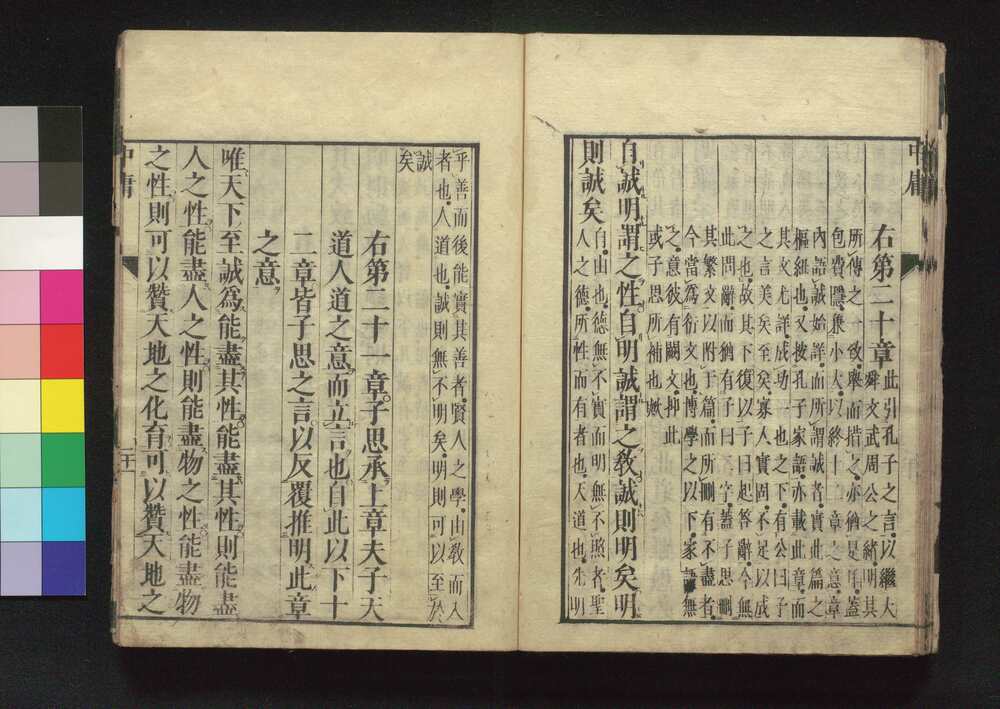 中庸
右第二十章
此引孔子之言以繼大
舜文武周公之緒明其
所傳之一致舉而措之亦猶是耳蓋
包費隱兼小大以終十二章之意章
內語誠始詳而所謂誠者實此篇之
樞紐也又按孔子家語亦載此章而
其文尤詳成功一也之下有公曰子
之言美矣至矣寡人實固不足以成
之也故其下復以子曰起答辭今無
此問辭而猶有子曰二字蓋子思刪
其繁文以附于篇而所刪有不盡者
今當爲衍文也博學之以下家語無
之意彼有闕文抑此
或子思所補也歟
自誠明謂之性自明誠謂之教誠則明矣明
則誠矣
自由也德無不實而明無不照者聖
人之德所性而有者也天道也先明
乎善而後能實其善者賢人之學由教而入
者也人道也誠則無不明矣明則可以至於
誠
矣
右第二十一章子思承上章夫子天
道人道之意而立言也自此以下十
二章皆子思之言以反覆推明此章
之意
唯天下至誠爲能盡其性能盡其性則能盡
人之性能盡人之性則能盡物之性能盡物
之性則可以贊天地之化育可以贊天地之
中庸